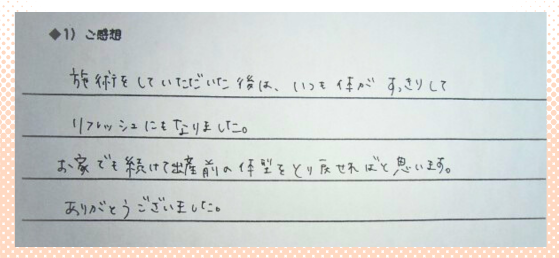 ◆1) ご感想
施術をしていただいた後は、いつも体がすっきりして
リフレッシュにもなりました。
お家でも続けて出産前の体型をとり戻せればと思います。
ありがとうございました。